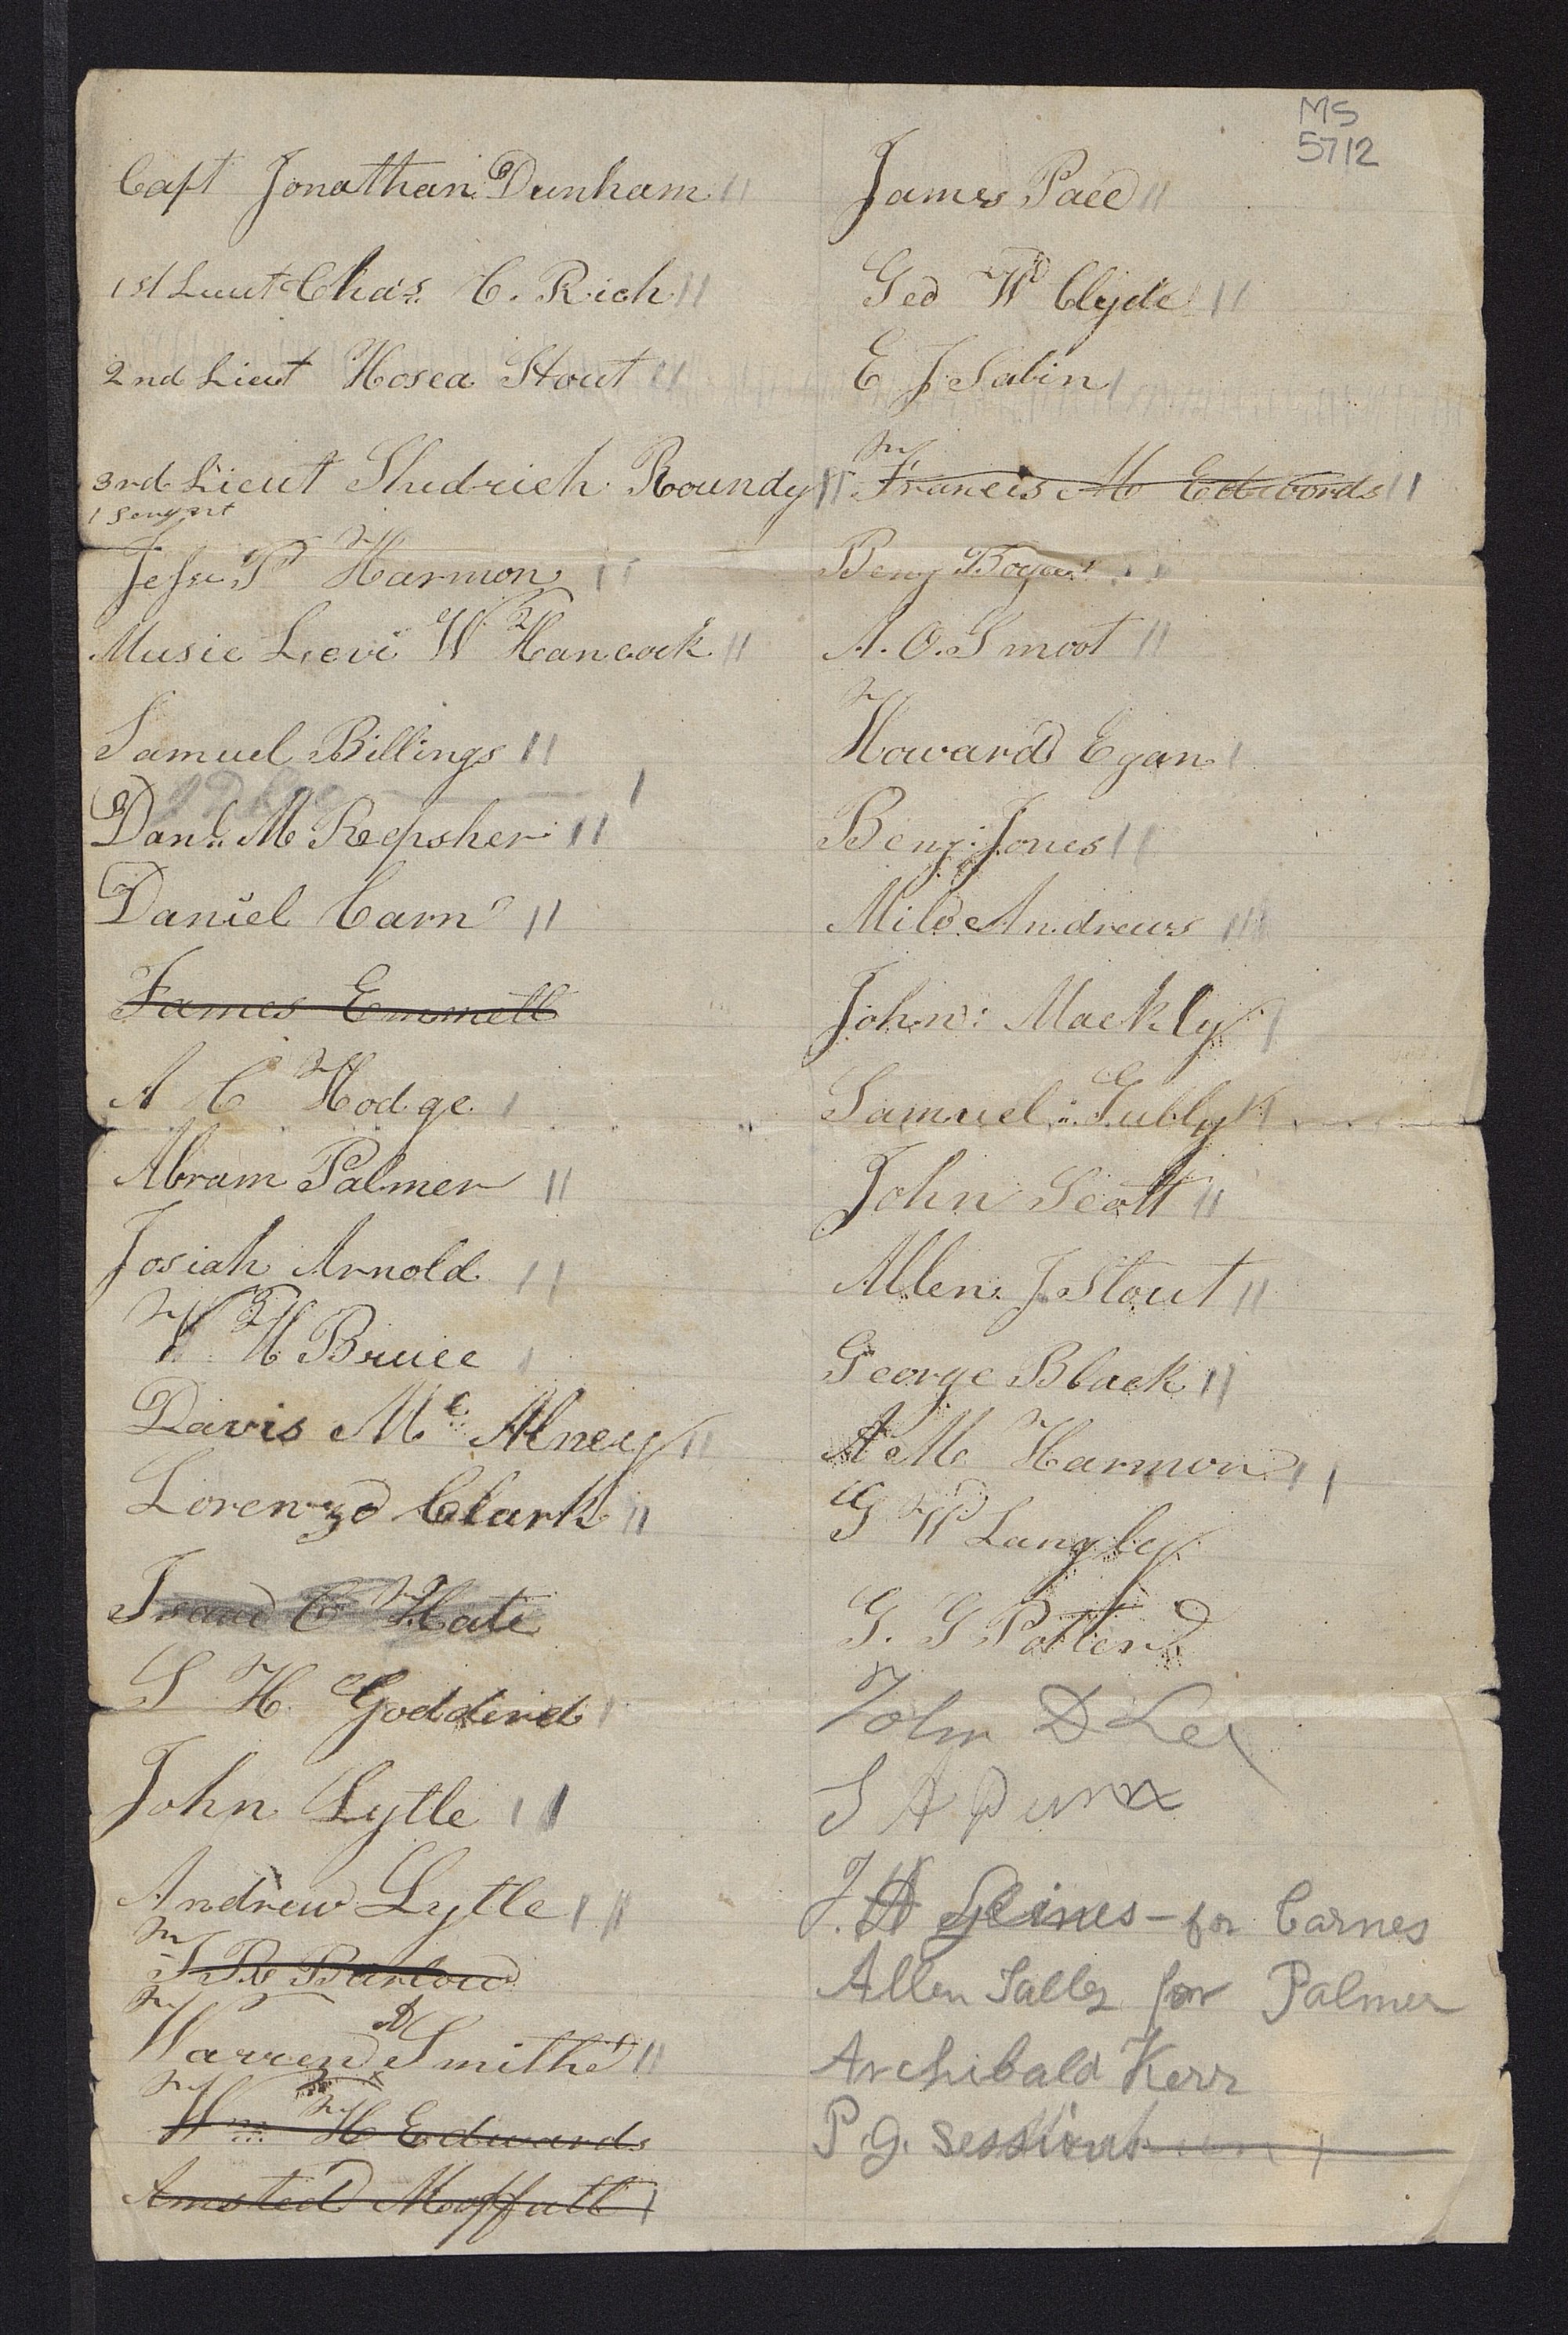 MS
5712
Capt Jonathan Dunham
1st Lieut Chas. C. Rich
2nd Lieut Hosea Stout
3rd Lieut Shedrich Roundy
1 Sergent
Jesse P Harmon
Music Levi W Hancock
Samuel Billings
Danl. M Repsher
Daniel Carn
James Emmett
A C Hodge
Abram Palmer
Josiah Arnold
W H Bruce
Davis Mc Alney
Lorenzo Clark
Isaac C Hate
S H Godderd
John Lytle
Andrew Lytle
I R Barlow
Warren Smith
Wm H Edwards
Amsted Moffatt
James Pace
Geo W Clyde
E J Sabin
Francis M Edwards
Benj Boyce
A. O. Smoot
Howard Egan
Benj. Jones
Milo Andrews
John Mackly
Samuel Gubly
John Scott
Allen J Stout
George Black
A M Harmon
G W Langley
G. G Potter
John D Lee
S A Dunn
J. A Glines - for Carnes
Allen Talley for Palmer
Archibald Kerr
P. G. Sessions